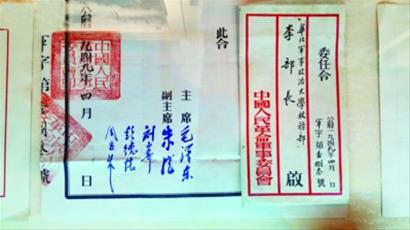 此令
主席 毛澤东
副主席 朱德
刘少奇
周恩来
彭德怀
公曆一九四九年四月 日
軍字第 號
中國人民
委任令
公曆一九四九年四月 日
軍字第壹捌叁號
華北軍事政治大學校務部
李部長 啟
中國人民革命軍事委員會